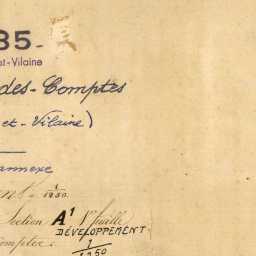 35-
et-Vilaine
des-Comptes
et-Vilaine)
annexe
1/1250
Section A¹ 1ère feuille
DÉVELOPPEMENT
1/1250